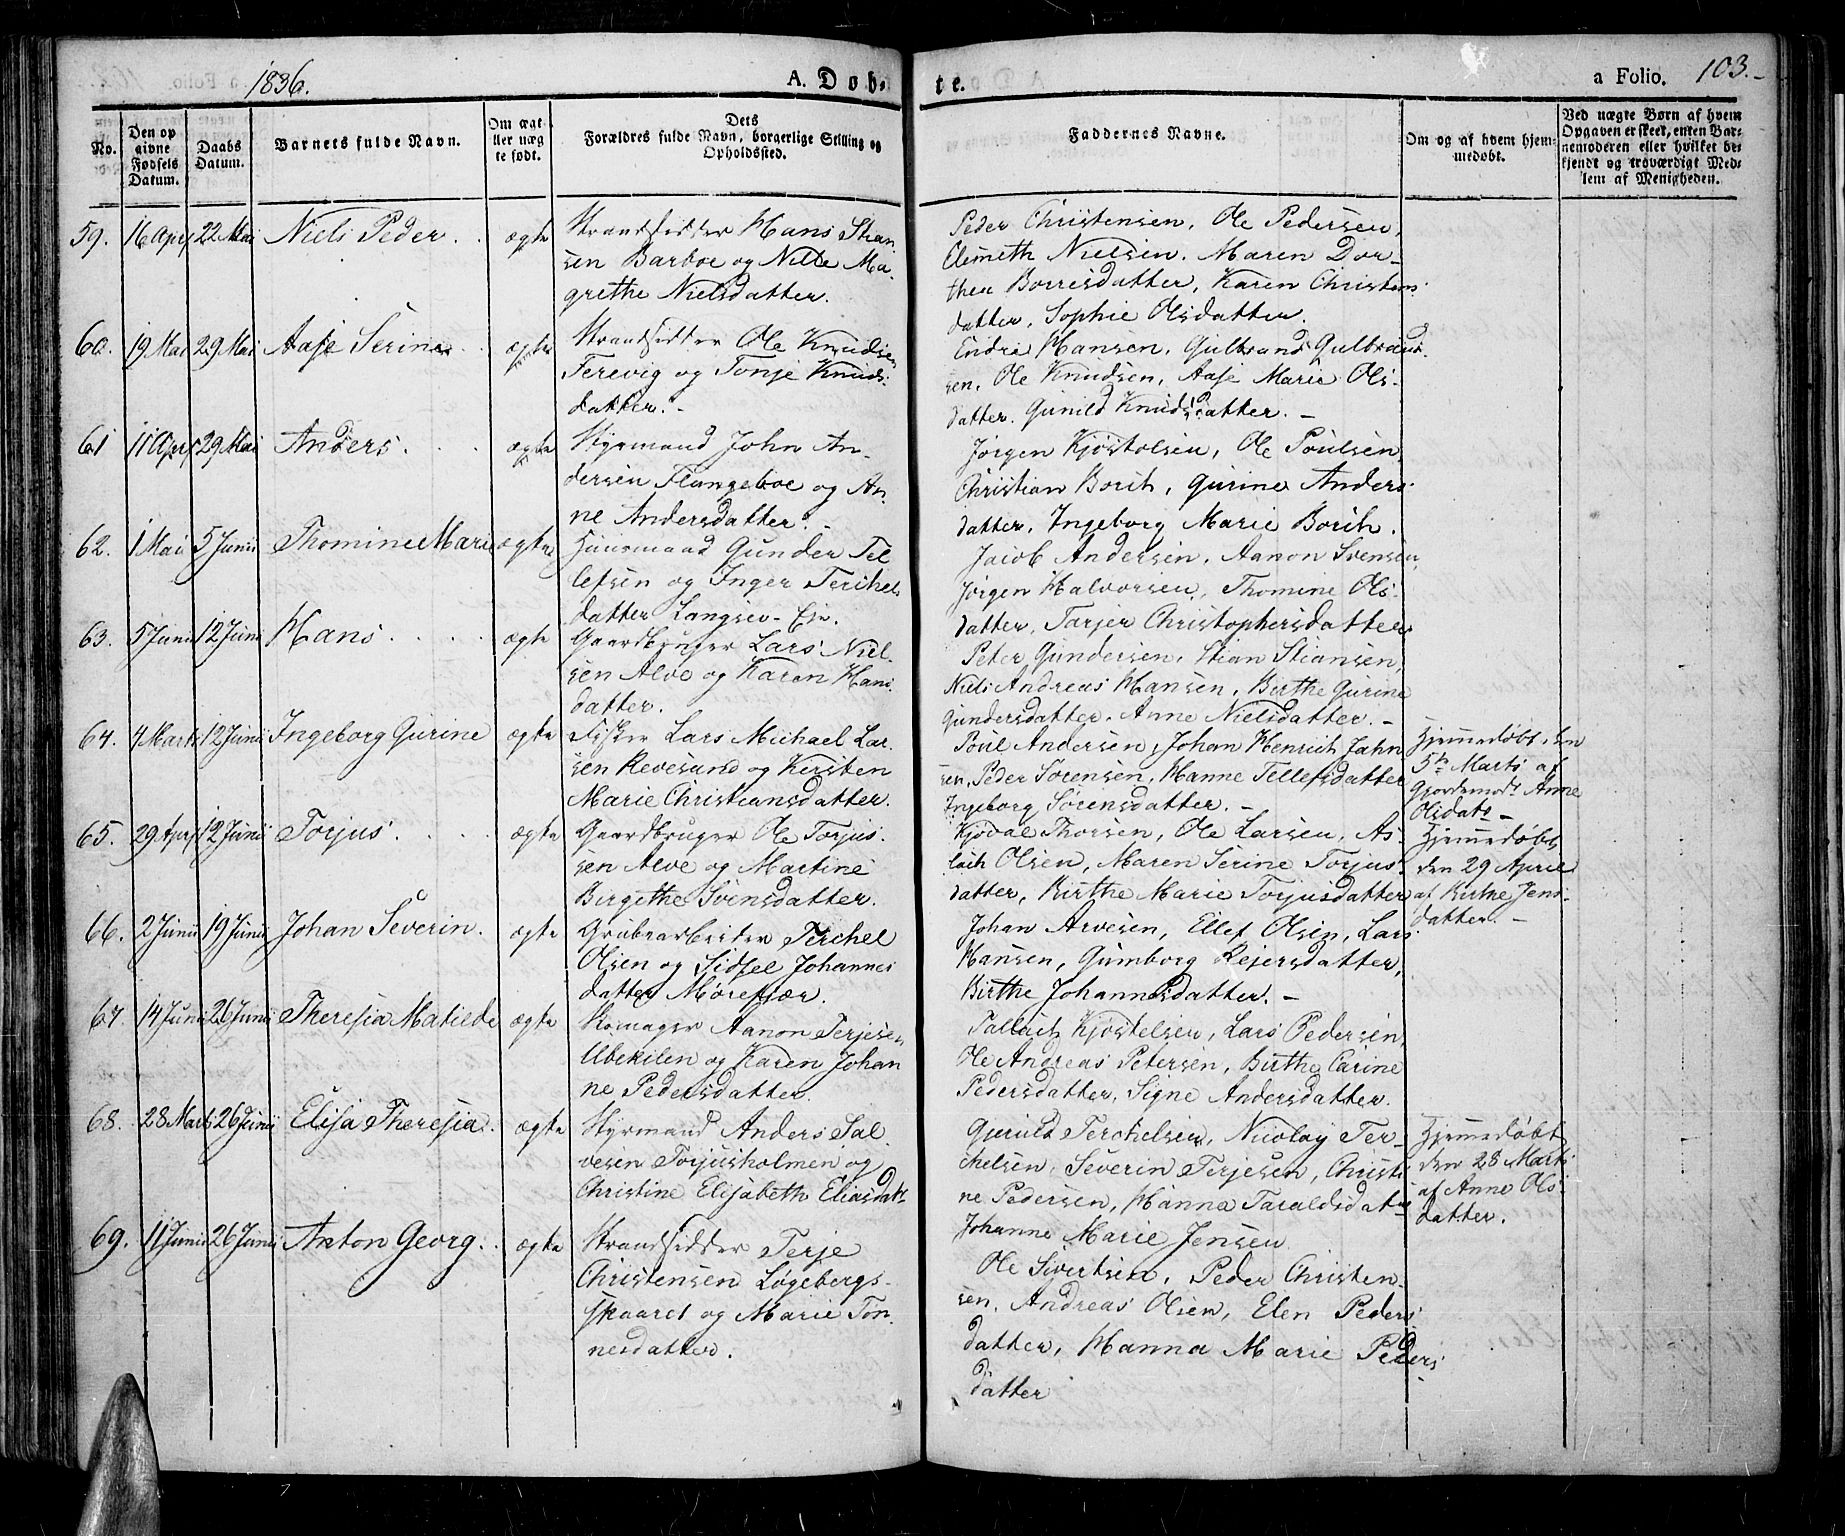 1836.
A. Døb-
te.
a Folio. 103.-
No.
Den op
givne
Fødsels
Datum.
Daabs
Datum.
Barnets fulde Navn.
Om ægt
ller næg
te født.
Dets
Forældres fulde Navn, borgerlige Stilling og
Opholdssted.
Faddernes Navne.
Om og af hvem hjem-
medøbt.
Ved uægte Børn af hvem
Opgaven er skeet, enten Bar-
nemoderen eller hvilket be-
kjendt og troværdigt Med-
lem af Menigheden.
59. 16 Apr 22 Mai Niels Peder. ægte
Strandsidder Hans Stian
sen Barboe og Nille Ma-
grethe Nielsdatter.
Peder Christensen, Ole Pedersen,
Clemeth Nielsen, Maren Dor-
thea Borresdatter, Karen Christens
datter, Sophie Olsdatter.
60. 19 Mai 29 Mai Aase Serine ægte
Strandsidder Ole Knudsen
Terevig og Tonje Knuds-
datter.-
Endre Hansen, Gulbrand Gulbrand
sen, Ole Knudsen, Aase Marie Ols-
datter, Gunild Knudsdatter.-
61 11 Apr 29 Mai Anders. ægte
Styrmand John An-
dersen Flangeboe og An
ne Andersdatter.-
Jörgen Kjöstolsen, Ole Poulsen,
Christian Borith, Gurine Anders
datter, Ingeborg Marie Borith.
62. 1 Mai 5 Junii Thomine Marie ægte
Huusmand Gunder Tel
lefsen og Inger Terchels
datter Langsev-Eie.
Jacob Andersen, Aanon Svensen,
Jörgen Halvorsen, Thomine Ols-
datter, Tarjer Christophersdatter
63. 5 Junii 12 Junii Hans ægte
Gaardbruger Lars Niel-
sen Alve og Karen Hans
datter.
Peter Gundersen, Stian Stiansen,
Niels Andreas Hansen, Birthe Gurine
Gundersdatter, Anne Nielsdatter.-
64. 4 Marts 12 Junii Ingeborg Gurine ægte
Fisker Lars Michael Lar-
sen Revesand og Kirsten
Marie Christiansdatter.
Poul Andersen, Johan Henrich Jahn
sen, Peder Sörensen, Hanne Tellefsdatter
Ingeborg Sörensdatter.-
Hjemmedøbt den
5te Marts af
Gjordemodr Anne
Olsdatr-
65. 29 Apr 12 Junii Torjus. ægte
Gaardbruger Ole Torjus-
sen Alve og Martine
Birgethe Svensdatter.
Kjödal Thorsen, Ole Larsen, As-
lach Olsen, Maren Serine Torjus-
datter, Birthe Marie Torjusdatter
Hjemmedøbt
den 29 April
af Birthe Jens-
datter.-
66. 2 Junii 19 Junii Johan Severin. ægte
Grubearbeider Terchel
Olsen og Sidsel Johannes
datter Mørefjær.
Johan Arvesen, Ellef Olsen, Lars
Hansen, Gumborg Reiersdatter,
Birthe Johannesdatter.-
67. 14 Junii 26 Junii Theresia Matilde ægte
Skomager Aanon Terjesen
Ubekilen og Karen Johan
ne Pedersdatter.
Pallach Kjöstelsen, Lars Pedersen,
Ole Andreas Petersen, Birthe Carine
Pedersdatter, Signe Andersdatter.
68. 28 Marts 26 Junii Elisa Theresia. ægte
Styrmand Anders Sal-
vesen Torjusholmen og
Christine Elisabeth Eliasdatr
Gjeruld Terchelsen, Nicolay Ter-
chelsen, Severin Terjesen, Christi
ne Pedersen, Hanna Taraldsdatter
Johanne Marie Jensen
Hjemmedøbt
den 28 Marts
af Anne Ols-
datter.
69. 11 Junii 26 Junii Anton Georg. ægte
Strandsidder Terje
Christensen Løgebergs-
skaaret og Marie Tön-
nesdatter.
Ole Sivertsen, Peder Christen-
sen, Andreas Olsen, Elen Peders
datter, Hanna Marie Peders
datter